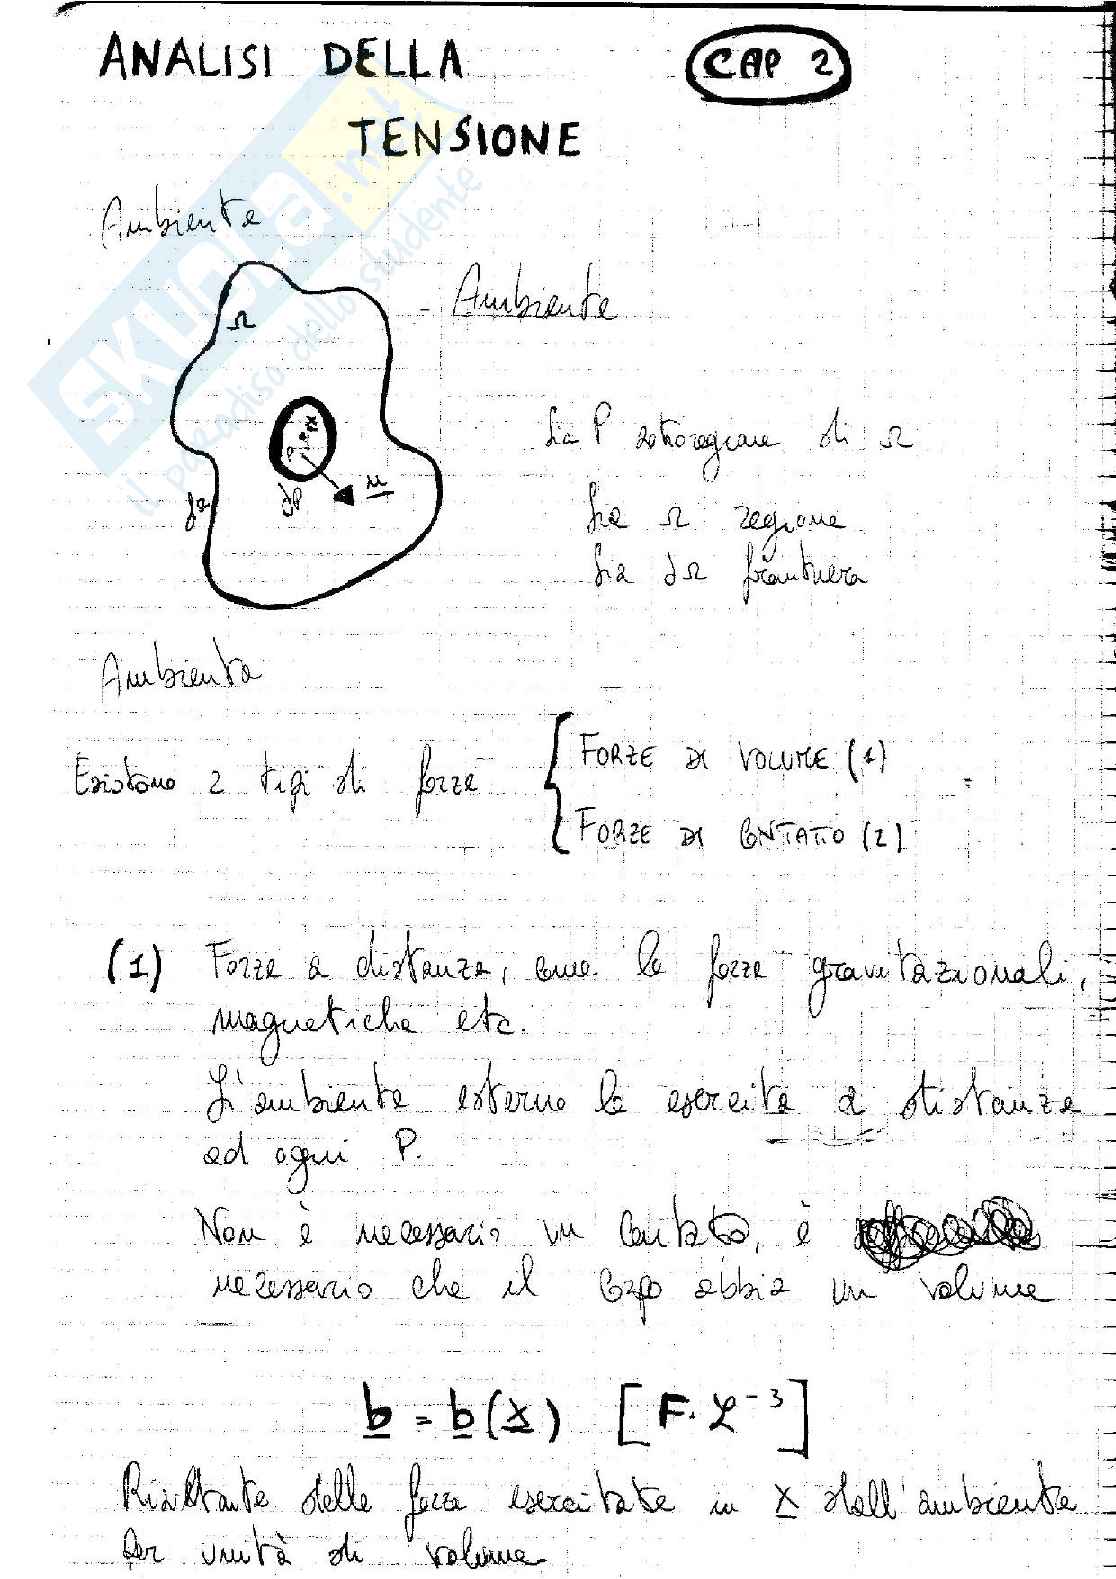 ANALISI DELLA
CAP 2
TENSIONE
Ambiente
Ambiente
Ω
P
∂P
n
∂Ω
Sia P sottoregione di Ω
Sia Ω regione
Sia ∂Ω frontiera
Ambiente
Esistono 2 tipi di forze
FORZE DI VOLUME (1)
FORZE DI CONTATTO (2)
(1) Forze a distanza, come le forze gravitazionali,
magnetiche etc.
L'ambiente esterno le esercita a distanza
ad ogni P.
Non è necessario un contatto, è
necessario che il corpo abbia un volume
b = b(x) [F·L⁻³]
Risultante delle forze esercitate in x dall'ambiente
per unità di volume
SKUOLA.net
il paradiso dello studente